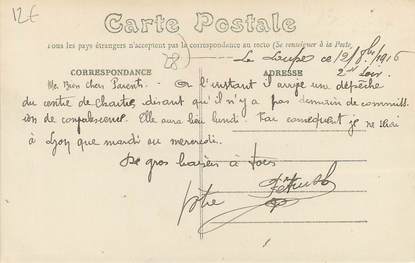 12€
Carte Postale
Tous les pays étrangers n'acceptent pas la correspondance au recto (Se renseigner à la Poste)
La Loupe ce 12/ 1916
CORRESPONDANCE
ADRESSE
2 Soir.
Mes Bien chers Parents. - A l'instant il arrive une dépêche
du centre de Chartres disant qu'il n'y a pas demain de committ
ion de convalescence. Elle aura lieu lundi. Par conséquent je ne serai
à Lyon que mardi ou mercredi.
De gros baisers à tous
Votre